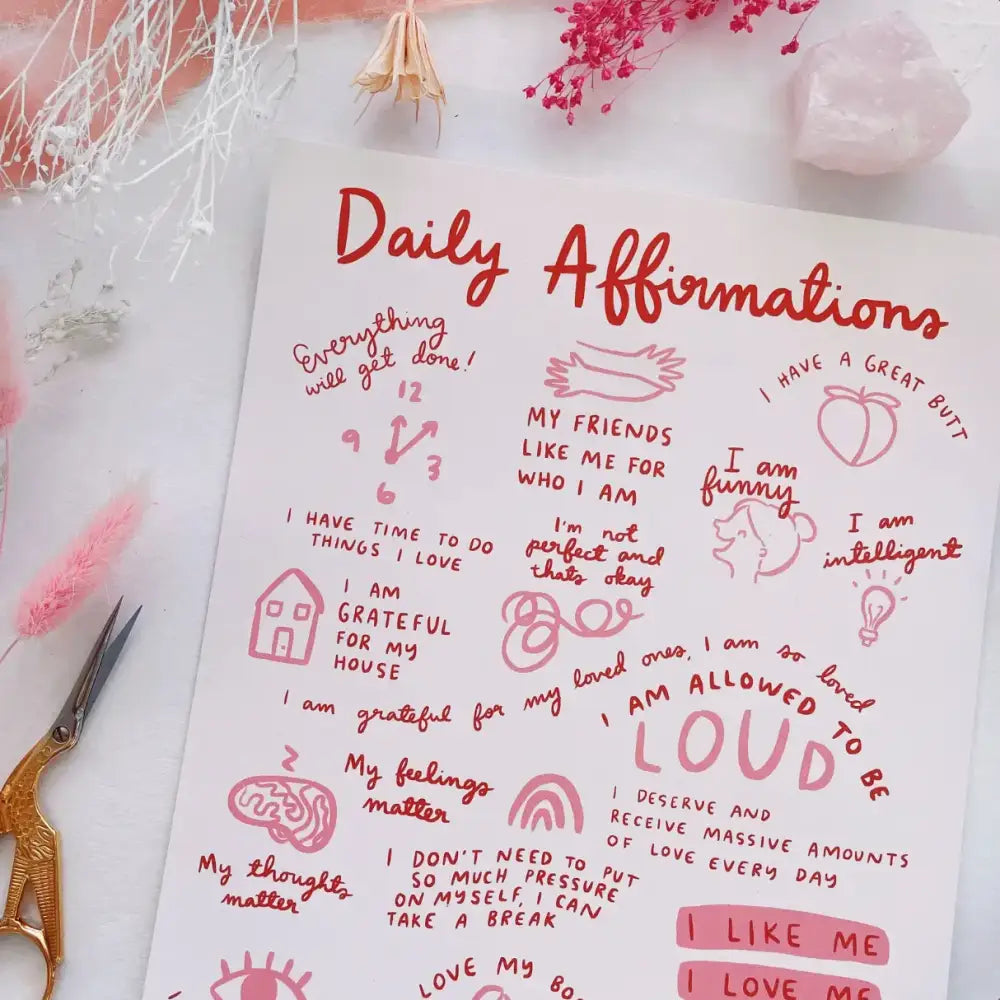 Daily Affirmations
Everything
will get done!
12
9
3
6
I HAVE TIME TO DO
THINGS I LOVE
MY FRIENDS
LIKE ME FOR
WHO I AM
I HAVE A GREAT BUTT
I am
funny
I'm not
perfect and
thats okay
I am
intelligent
I AM
GRATEFUL
FOR MY
HOUSE
I am grateful for my loved ones, I am so loved
I AM ALLOWED TO BE
LOUD
My feelings
matter
I DESERVE AND
RECEIVE MASSIVE AMOUNTS
OF LOVE EVERY DAY
My thoughts
matter
I DON'T NEED TO PUT
SO MUCH PRESSURE
ON MYSELF, I CAN
TAKE A BREAK
I LIKE ME
I LOVE ME
LOVE MY